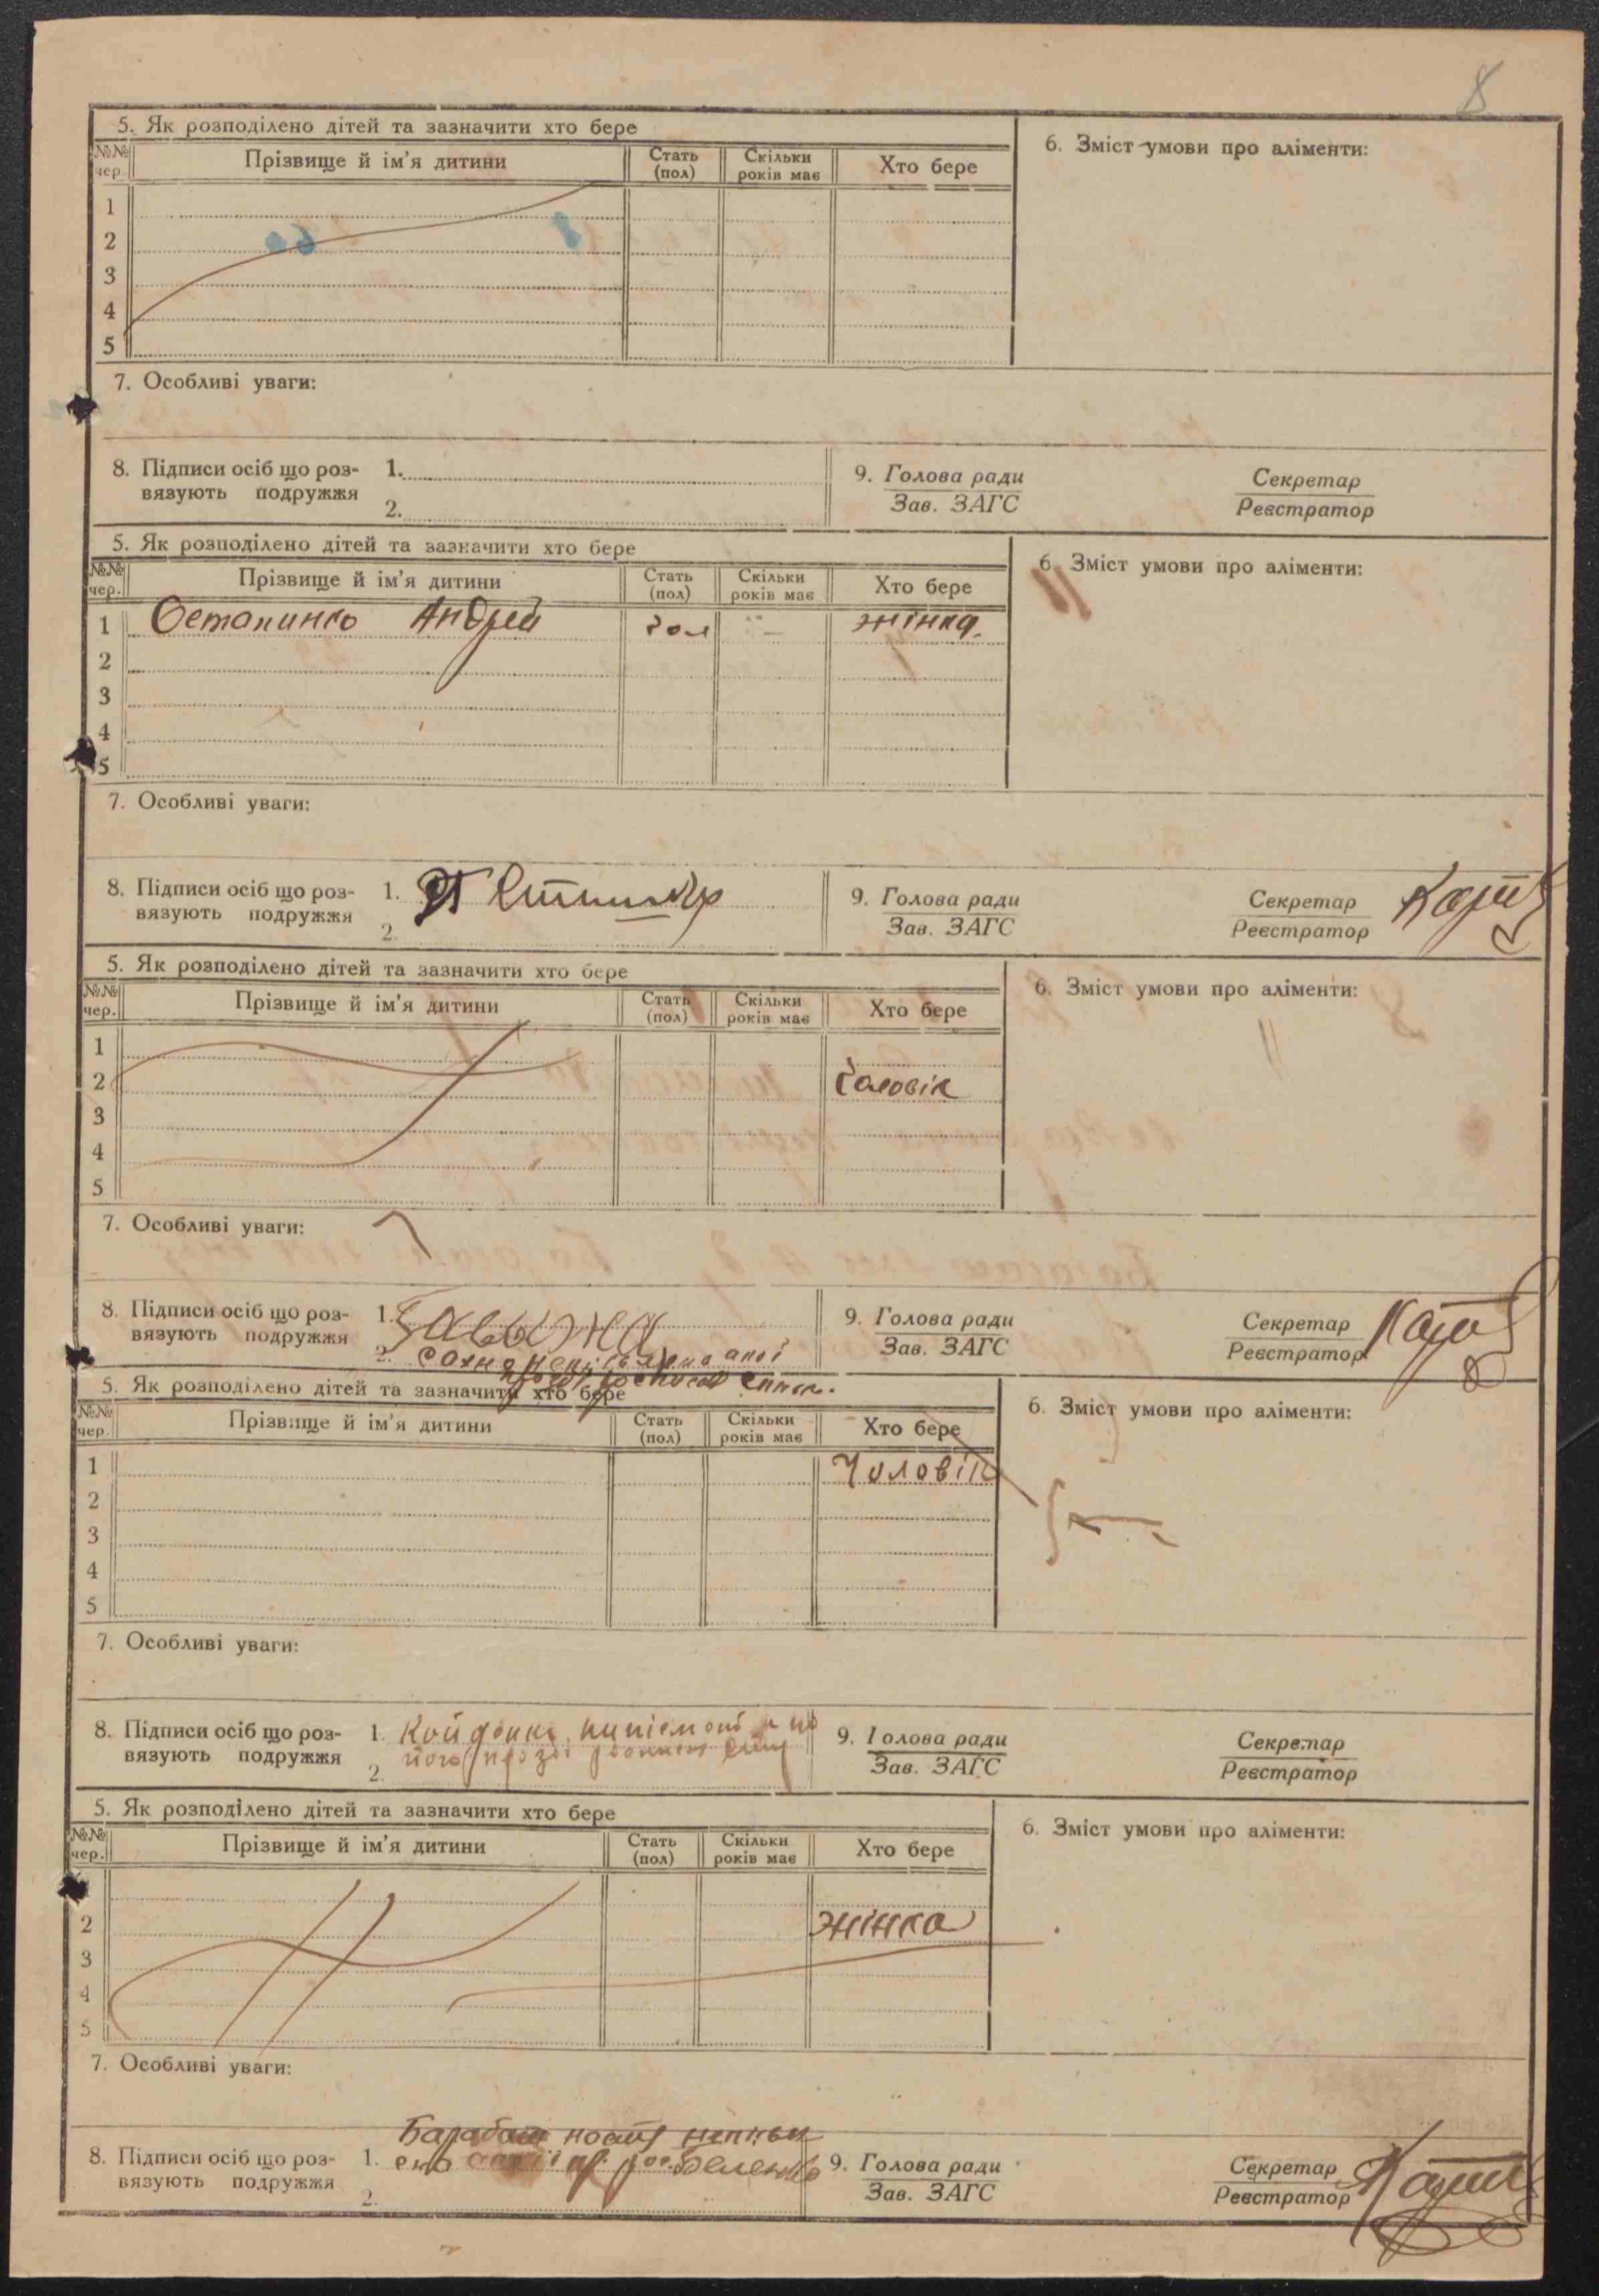 8
5. Як розподілено дітей та зазначити хто бере
6. Зміст умови про аліменти:
№№ чер. Прізвище й ім'я дитини Стать (пол) Скільки років має Хто бере
1
2
3
4
5
7. Особливі уваги:
8. Підписи осіб що роз-
вязують подружжя
1.
2.
9. Голова ради
Зав. ЗАГС
Секретар
Реєстратор
5. Як розподілено дітей та зазначити хто бере
6. Зміст умови про аліменти:
№№ чер. Прізвище й ім'я дитини Стать (пол) Скільки років має Хто бере
1 Андрей жінка
2
3
4
5
7. Особливі уваги:
8. Підписи осіб що роз-
вязують подружжя
1.
2.
9. Голова ради
Зав. ЗАГС
Секретар
Реєстратор
5. Як розподілено дітей та зазначити хто бере
6. Зміст умови про аліменти:
№№ чер. Прізвище й ім'я дитини Стать (пол) Скільки років має Хто бере
1
2 Чоловік
3
4
5
7. Особливі уваги:
8. Підписи осіб що роз-
вязують подружжя
1.
2.
9. Голова ради
Зав. ЗАГС
Секретар
Реєстратор
5. Як розподілено дітей та зазначити хто бере
6. Зміст умови про аліменти:
№№ чер. Прізвище й ім'я дитини Стать (пол) Скільки років має Хто бере
1 Чоловік
2
3
4
5
7. Особливі уваги:
8. Підписи осіб що роз-
вязують подружжя
1.
2.
9. Голова ради
Зав. ЗАГС
Секретар
Реєстратор
5. Як розподілено дітей та зазначити хто бере
6. Зміст умови про аліменти:
№№ чер. Прізвище й ім'я дитини Стать (пол) Скільки років має Хто бере
2 жінка
3
4
5
7. Особливі уваги:
Барабаш
8. Підписи осіб що роз-
вязують подружжя
1.
2.
9. Голова ради
Зав. ЗАГС
Секретар
Реєстратор